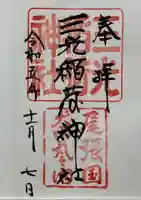 奉拝
三光稲荷神社
令和五年
十一月
七日
三光
稲荷
神社
尾張国